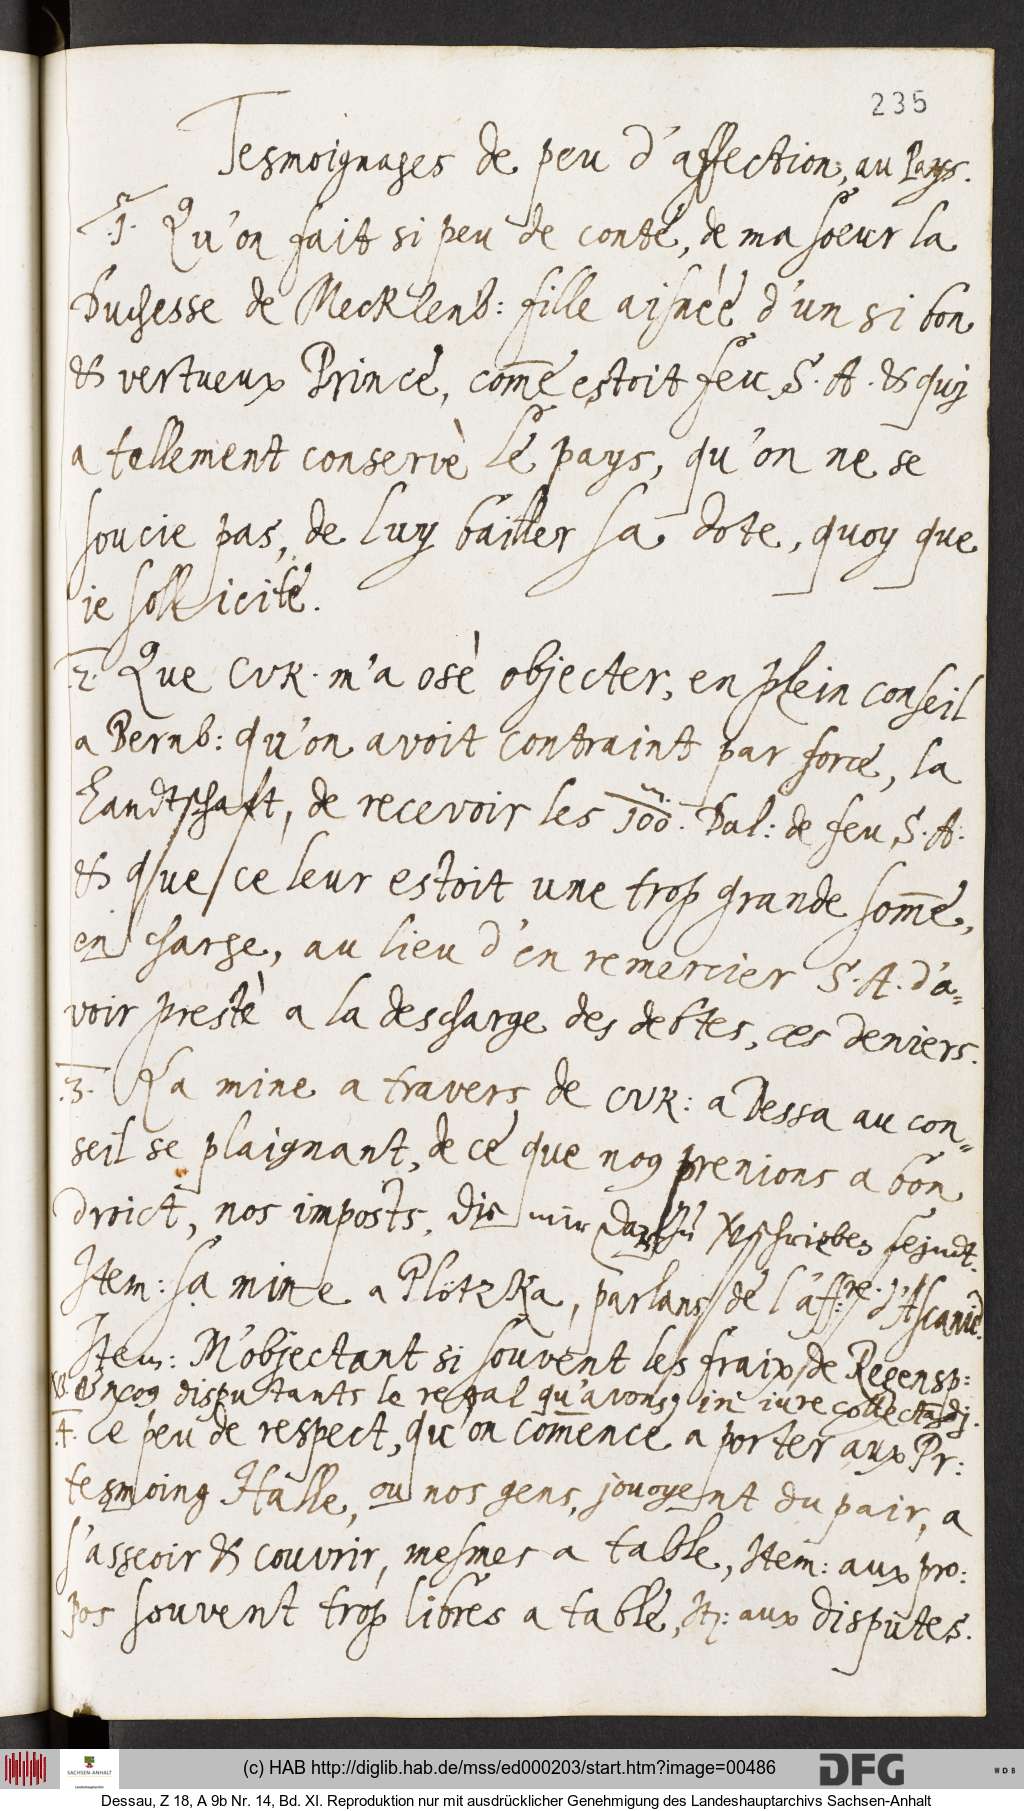 235
Tesmoignages de peu d'affection, au Pays.
.1. Qu'on fait si peu de conte, de ma soeur la
Duchesse de Mecklenb: fille aisnèe d'un si bon
& vertueux Prince, come estoit feu S. A. & quj
a tellement conservè le pays, qu'on ne se
soucie pas, de luy bailler sa dote, quoy que
ie sollicite.
.2. Que CVK. m'a osè objecter, en plein conseil
a Bernb: qu'on avoit contraint par force, la
Landtschaft, de recevoir les 100. Dal: de feu S. A.
& que ce leur estoit une trop grande some,
en charge, au lieu d'en remercier S. A. d'a-
voir prestè a la descharge des debtes, ces deniers.
.3. La mine a travers de CVK: a Dessa au con-
seil se plaignant, de ce que nog prenions a bon
droict, nos imposts, die mir darzu verschrieben seindt.
Item: sa mine a Plötzka, parlans de l'aff:re d'Ascanie.
Item: M'objectant si souvent les fraix de Regensp:
& ncog disputants le regal qu'avons, in iure collectandj.
.4. Ce peu de respect, qu'on comence a porter aux Pr:
tesmoing Halle, ou nos gens, jouoyent du pair, a
s'asseoir & couvrir, mesmes a table, Item: aux pro:
pos souvent trop libres a table, It: aux disputes.
(c) HAB http://diglib.hab.de/mss/ed000203/start.htm?image=00486
SACHSEN-ANHALT
Landeshauptarchiv
DFG
WDB
Dessau, Z 18, A 9b Nr. 14, Bd. XI. Reproduktion nur mit ausdrücklicher Genehmigung des Landeshauptarchivs Sachsen-Anhalt